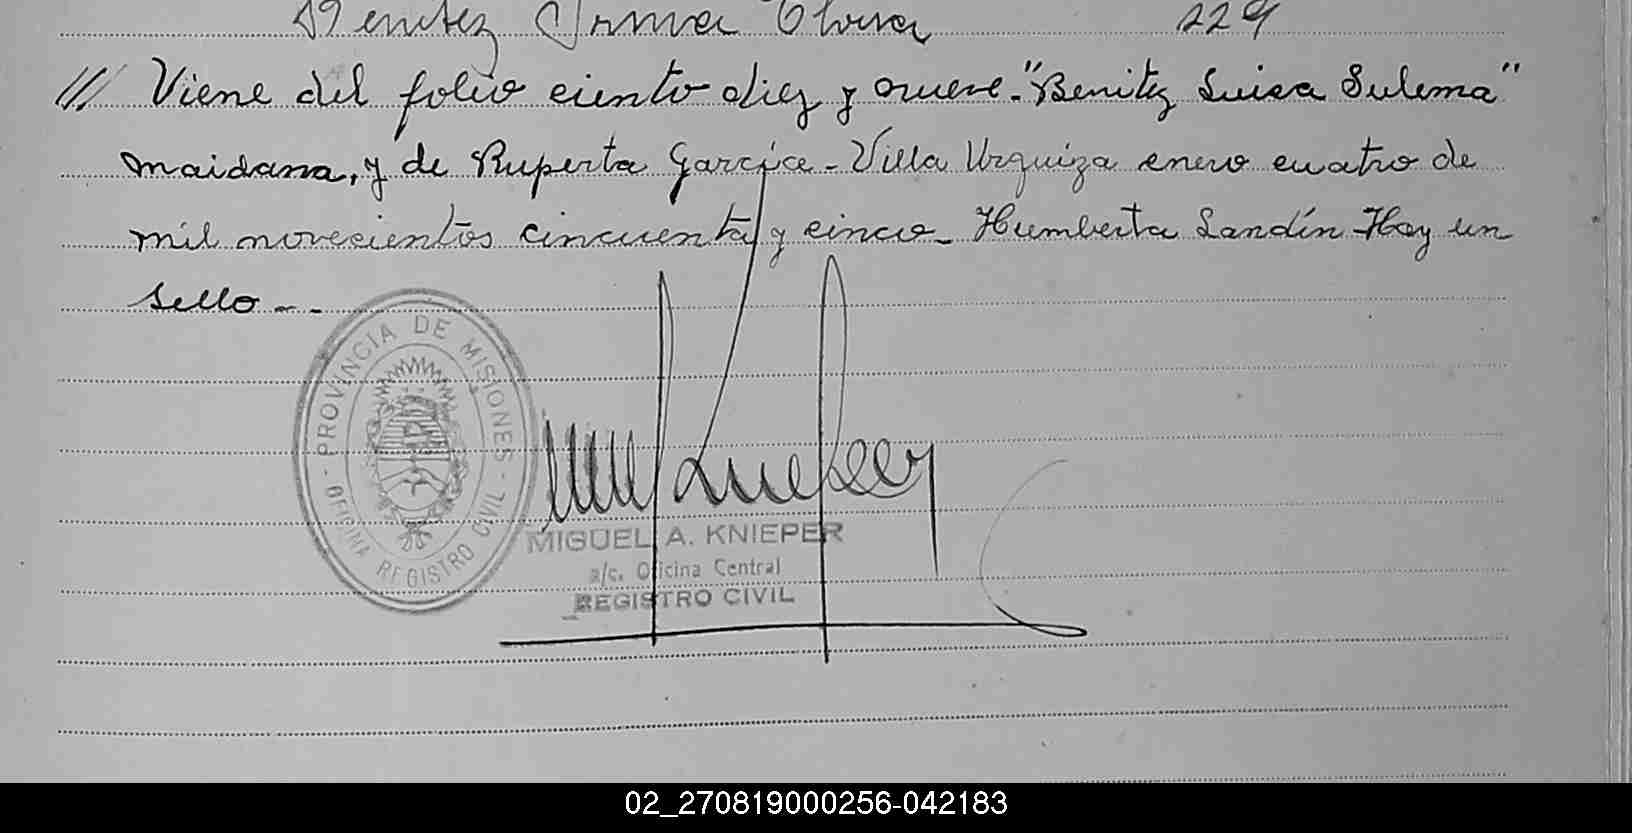 Benitez Irma Elvira 229
/// Viene del folio ciento diez y nueve. "Benitez Luisa Sulema"
maidana, y de Ruperta García - Villa Urquiza enero cuatro de
mil novecientos cincuenta y cinco - Humberta Landín - Hay un
sello - -
PROVINCIA DE MISIONES
OFICINA REGISTRO CIVIL
MIGUEL A. KNIEPER
a/c. Oficina Central
REGISTRO CIVIL
02_270819000256-042183